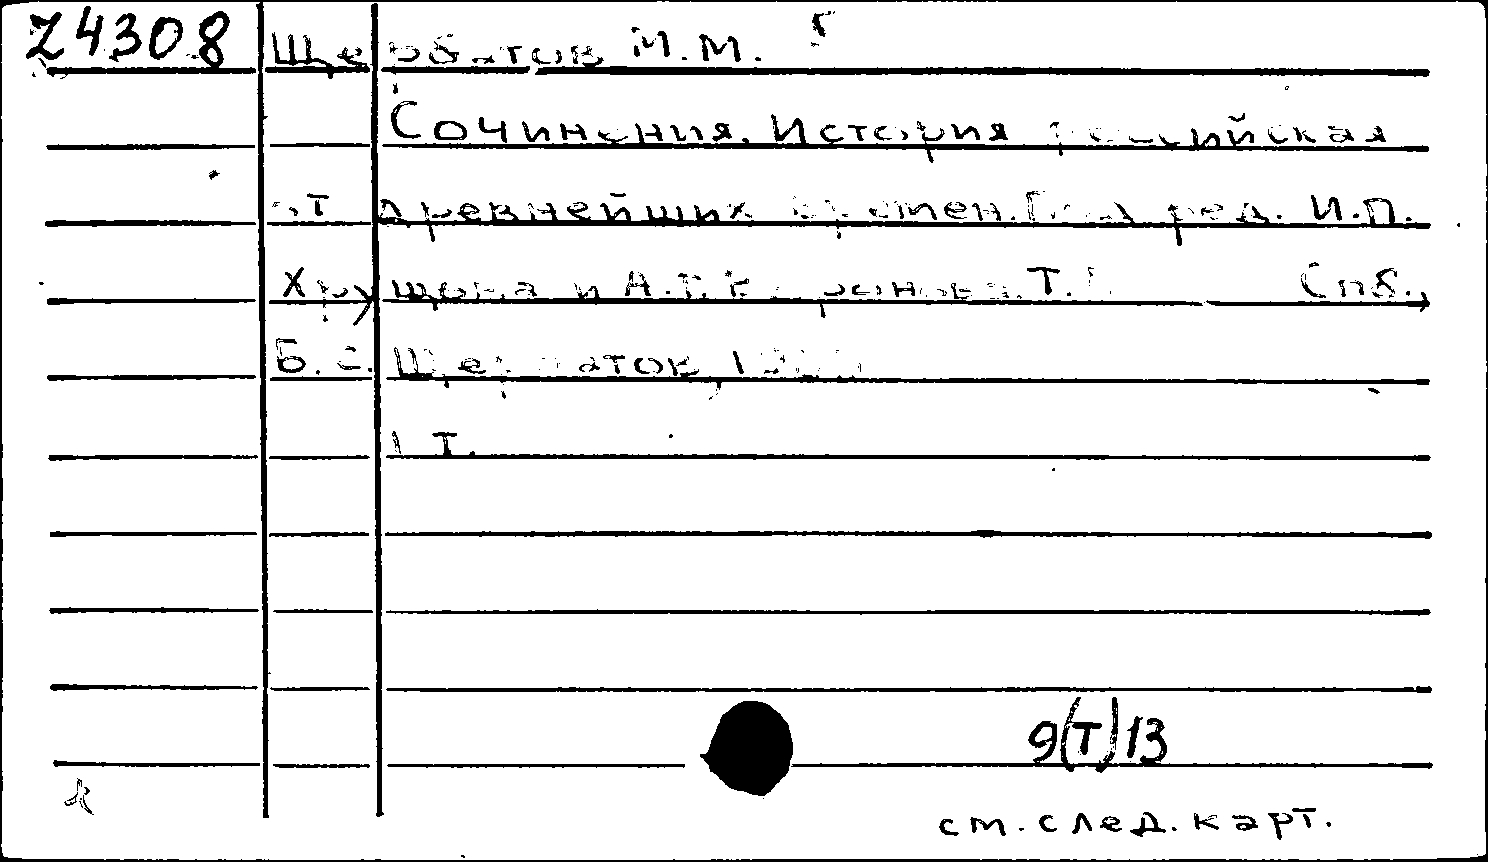 Z4308 Щербатов М.М.
Сочинения. История российская
от древнейших времен. Под ред. И.П.
Хрущова и А.Г. Воронова. Т. Спб.,
Б.С. Щербатов,
1 т.
9(Т)13
см. след. карт.